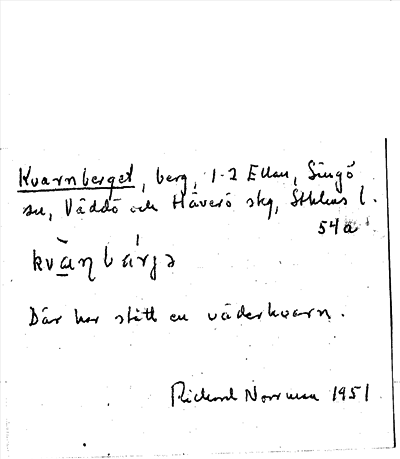 Kvarnberget, berg, 1-2 Ellan, Singö
sn, Väddö och Häverö skg, Sthlms l.
54a
kvàṇbárjə
Där har stått en väderkvarn.
Rickard Norrman 1951